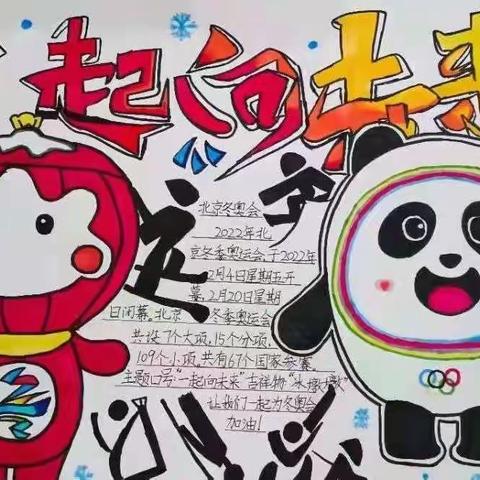 起向未来
北京冬奥会
2022年北
京冬季奥运会,于2022年
2月4日星期五开
幕,2月20日星期
日闭幕。北京冬季奥运会
共设7个大项,15个分项,
109个小项。共有67个国家参赛。
主题口号:"一起向未来"吉祥物"冰墩墩"
让我们一起为冬奥会
加油!